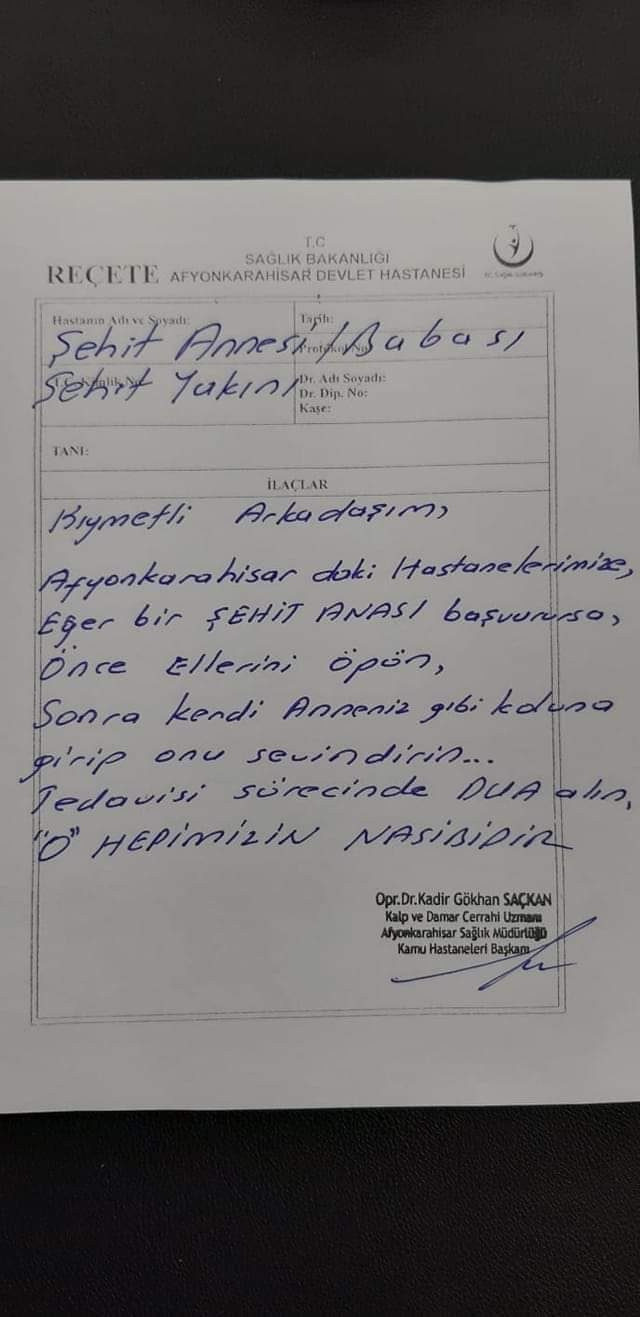 T.C
SAĞLIK BAKANLIĞI
REÇETE AFYONKARAHİSAR DEVLET HASTANESİ
Hastanın Adı ve Soyadı:
Tarih:
Şehit Annesi/Babası
Protokol No:
Şehit Yakını
Dr. Adı Soyadı:
Dr. Dip. No:
Kaşe:
TANI:
İLAÇLAR
Kıymetli Arkadaşım,
Afyonkarahisar daki Hastanelerimize,
Eğer bir ŞEHİT ANASI başvurursa,
Önce Ellerini öpün,
Sonra kendi Anneniz gibi koluna
girip onu sevindirin...
Tedavisi sürecinde DUA alın,
"O" HEPİMİZİN NASİBİDİR
Opr.Dr.Kadir Gökhan SAÇKAN
Kalp ve Damar Cerrahi Uzmanı
Afyonkarahisar Sağlık Müdürlüğü
Kamu Hastaneleri Başkanı